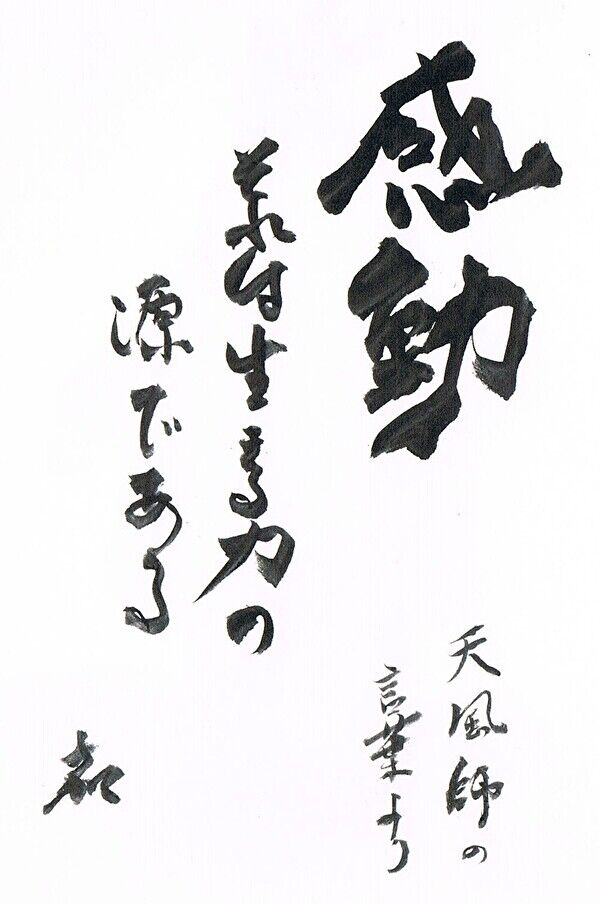 感動
それは生きる力の
源である
天風師の
言葉より